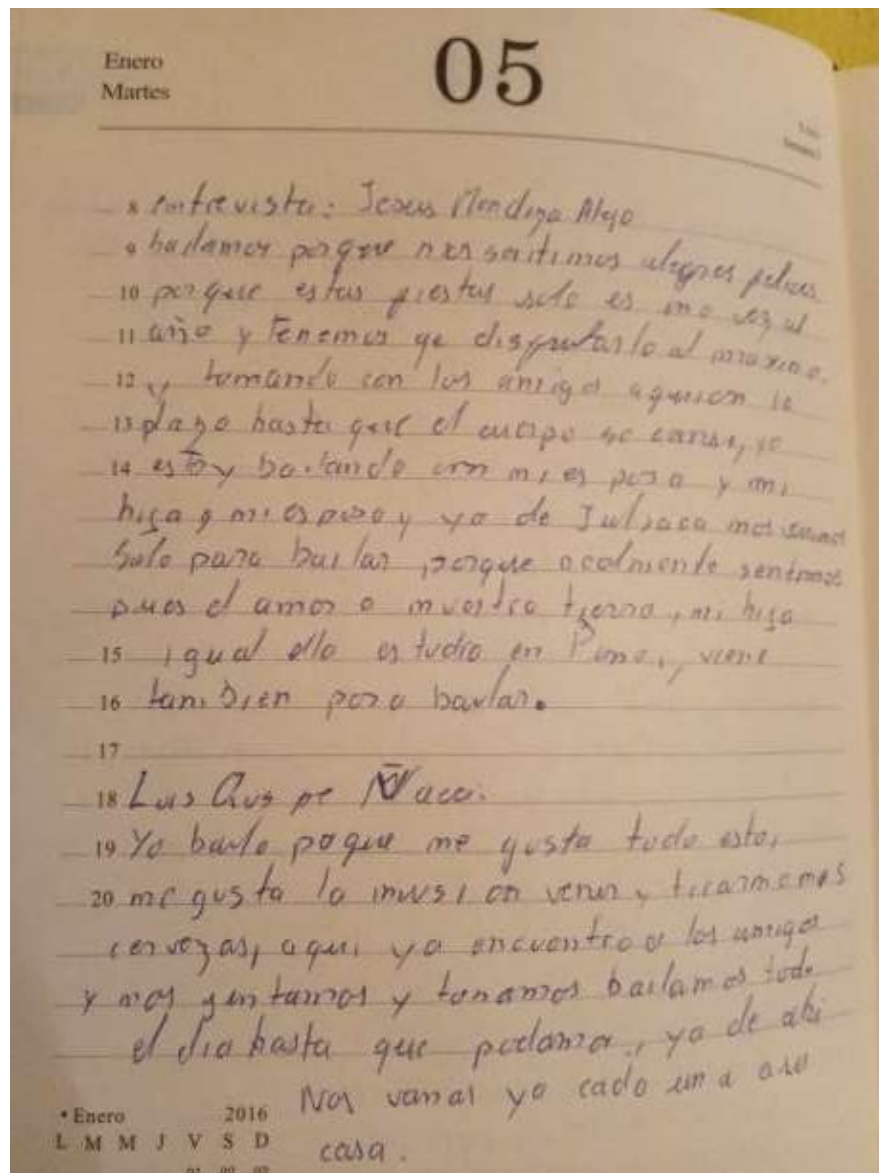 Enero
Martes
05
8 entrevista: Jesus Mendoza Alejo
9 bailamos porque nos sentimos alegres felices
10 porque estas fiestas solo es una vez al
11 año y tenemos qe disfrutarlo al maximo.
12 y tomando con los amigos aquion le
13 plazo hasta que el cuerpo se canse, yo
14 estoy bailando con mi esposa y mi
hija y mi esposa y yo de Juliaca nos
solo para bailar, porque sentimos
pues el amor a nuestra tierra, mi hija
15 igual ella estudia en Puno, viene
16 tambien para bailar.
17
18 Luis Qus pe Ñaca.
19 Yo bailo poque me gusta todo esto,
20 me gusta la venir y
cervezas, aqui ya encuentro a los amigos
y nos juntamos y tomamos bailamos todo
el dia hasta que podamos, ya de ahi
Nos vamos ya cada una asu
casa.
• Enero 2016
L M M J V S D
01 02 03